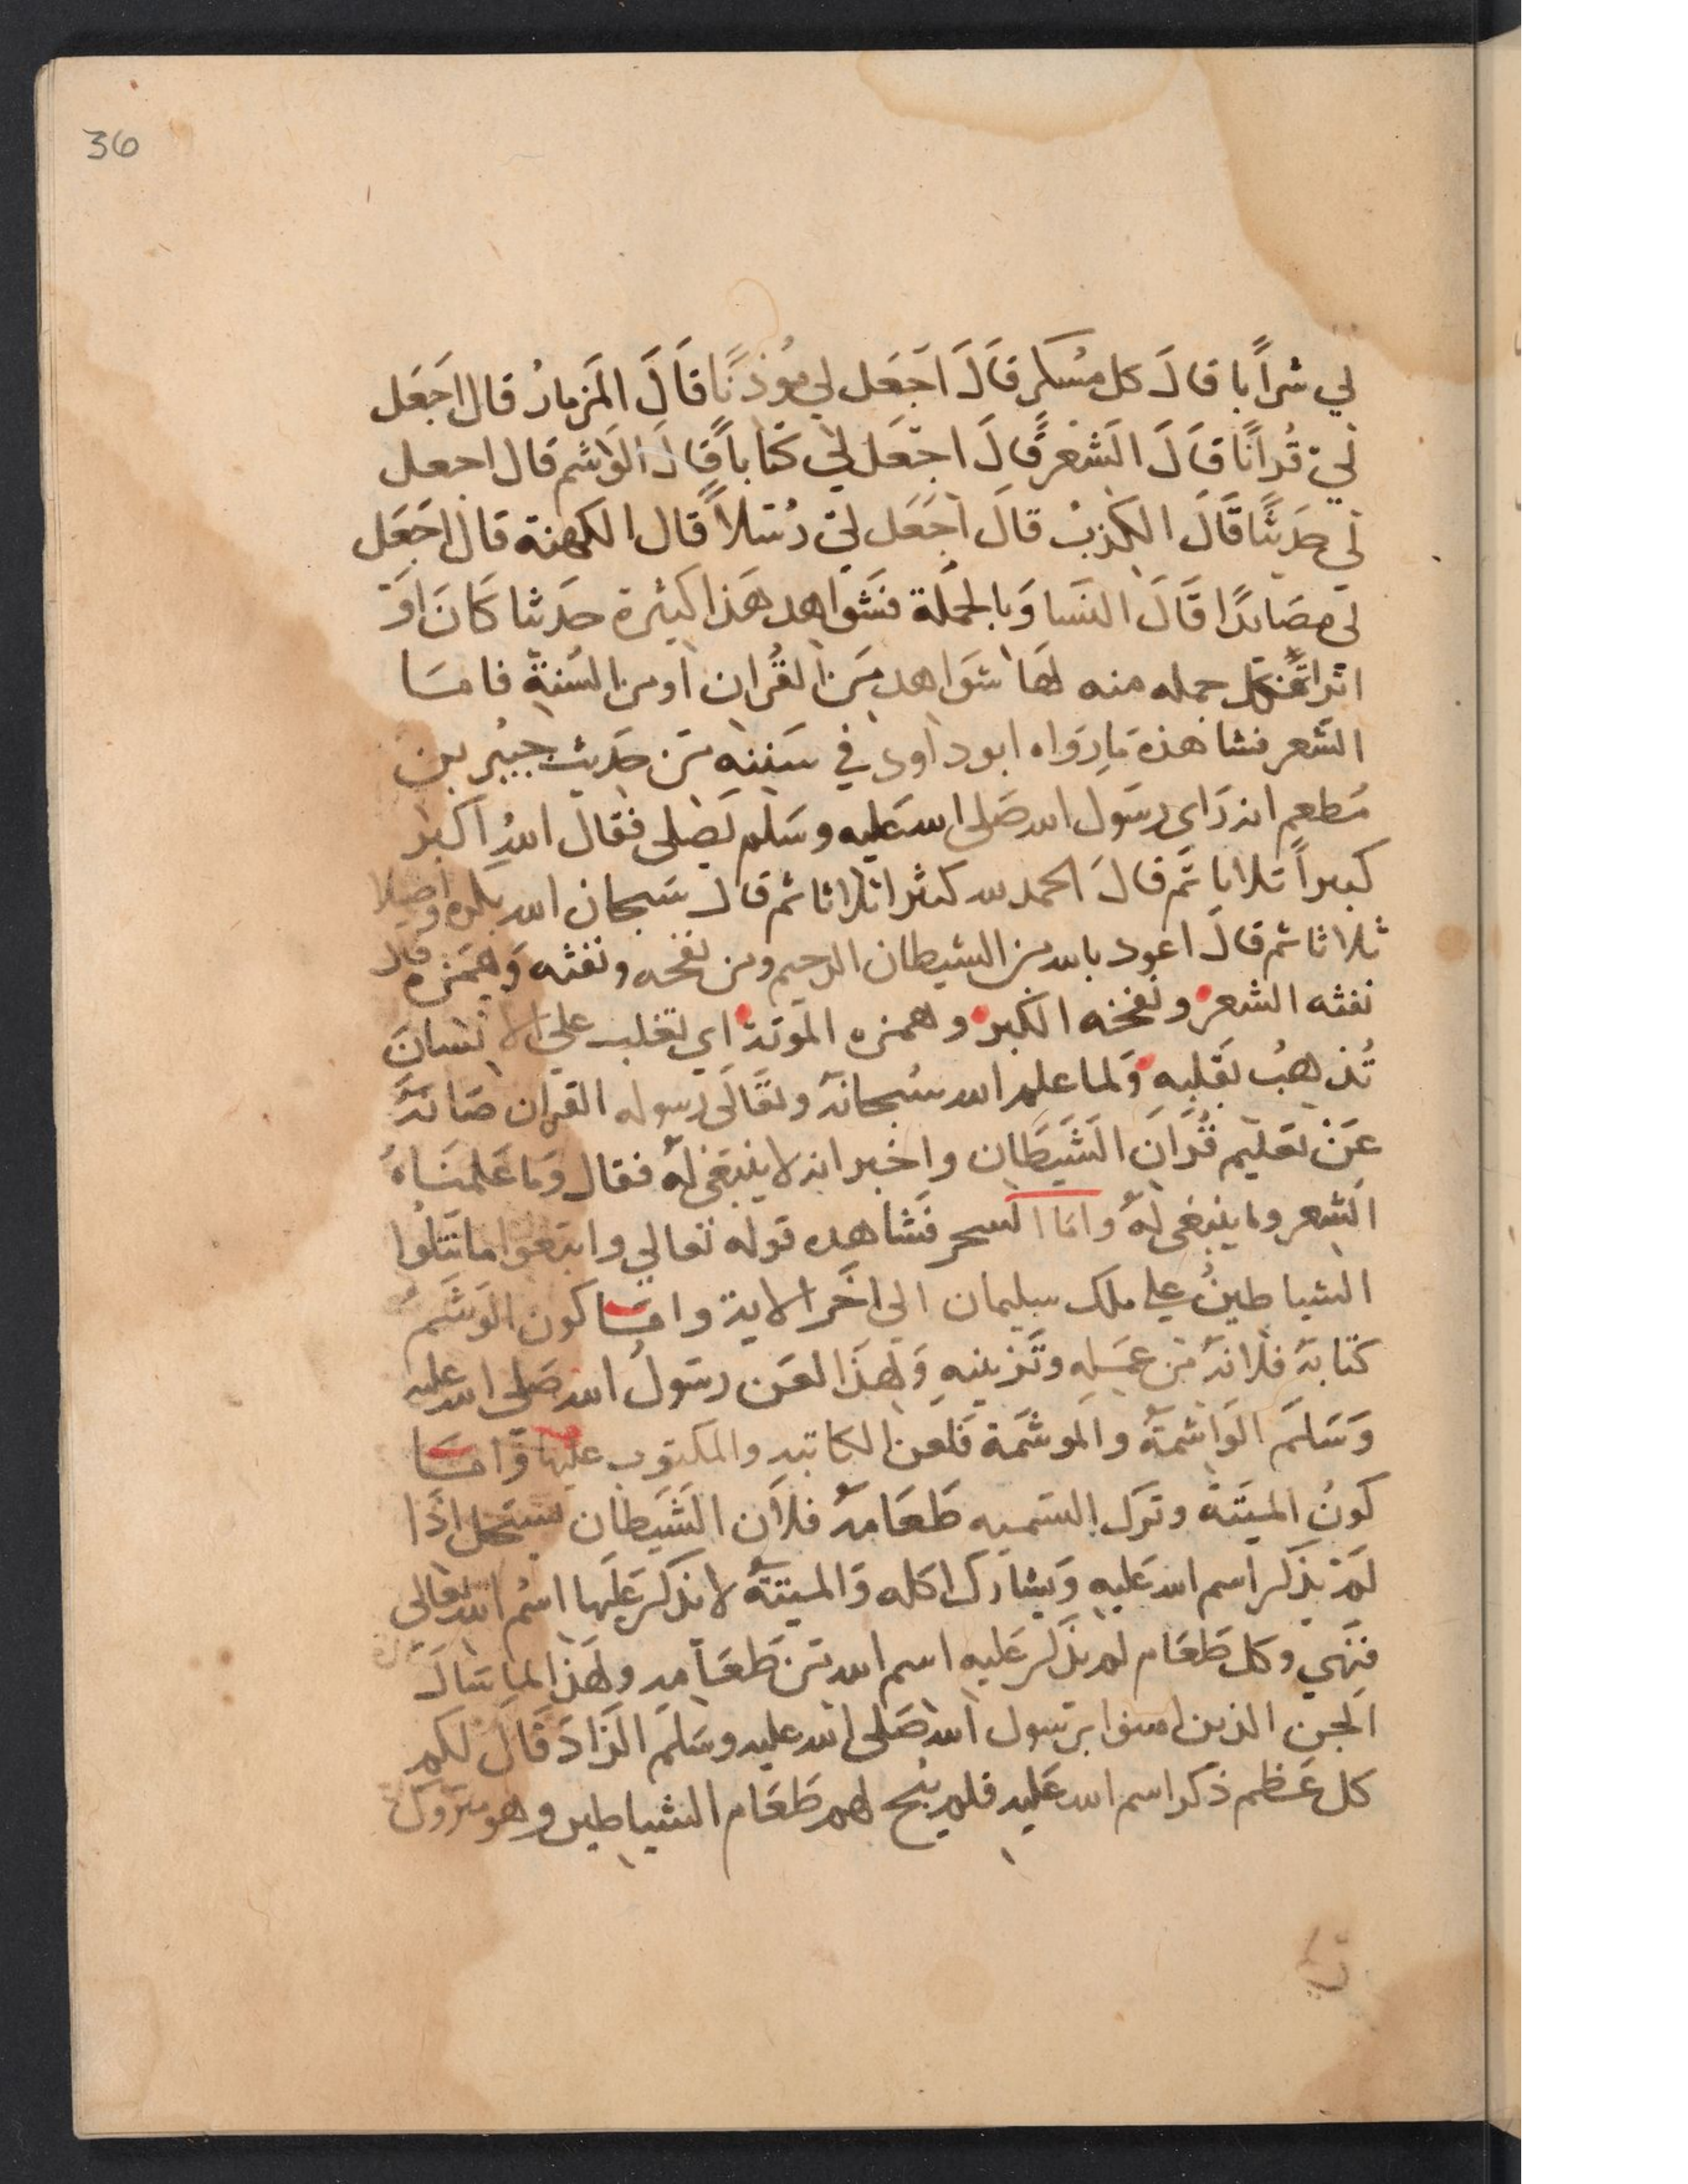 36
لي شراًبا قالَ كل مُسكر قَالَ اجعَل لي موُذنًا قَالَ المَزمارُ قال اجَعَل
لي قُرانًا قَالَ الشَعر قَالَ اجَعَل لي كتاباً قالَ الوَاشم قال اجعل
لي حَديثًا قَالَ الكذبُ قالَ اجَعَل لي رُسَلاً قال الكهنة قال اجَعَل
لي مصَايدًا قَالَ النسَا وَبالجمَلة فشَواهد هَذا كثيرة حَديثا كَانَ اوَ
اثرا فكل جمله منه لهَا شَواهد مِن القُران اومن السُنة فامسَا
الشعر فشاهذه مَا رَوَاه ابوداود في سَننه مَن حَديث جبيُر بن
مُطعم انه رَاي رسَول الله صَلى الله عَليه وسَلم يَصَلى فقال اللهُ اكبر
كبيراً ثلاثا ثم قالَ الحمد لله كثيرا ثلاثا ثم قال سَبحان الله بكره واصَيلا
ثلاثا ثم قالَ اعوذ بالله من الشيطان الرجيم ومن نفخه ونفثه وَهَمَزه قال
نفثه الشعر ونفخه الكبر وهمزه الموَتة اي تغلب علي الانسَان
تُذهبُ بقَلبه وَلما علم الله سُبحانهَ وتقَالَى رسوله القران صَانهَ
عَنْ تعَليم قُرَانَ الشَيَطَان واخبر انه لا ينبَغي لهُ فقال وَمَا عَلمنَاهُ
الشعر وما ينبغي لهُ وامَا السحر فشَاهده قوله تعالي واتبعَوا ما تَتلُوا
الشياطينُ علي ملك سليمان الي اخَر الاية وامسَا كون الوَشَم
كتابهَ فلانهَ من عمَله وتَزيينهِ وَلهذَا لعَن رسَولُ الله صَلى الله عليه
وَسَلمَ الوَاشمةُ والموشمَة فَلعن الكاتبه والمكتوب عليها وَامسَا
كونُ الميَتةُ وترك السَميه طَعَامهُ فلاَن الشَيَطان يستَحل اذَا
لمَ يذكر اسم الله عَليه وَيشارك اكله وَالميتةُ لا يذكر عَليها اسُم الله تعَالى
فهَي وكل طَعَام لم يذَكر عَليهِ اسم الله مَن طَعَامه ولهَذا لما سَالَ
الجن الذين امنوا برسَول الله صَلى الله عليه وسَلمَ الزَادَ قَالَ لكم
كل عَظم ذكر اسم الله عَليه فلم يبُح لهم طَعَام الشياطين وهو متروك